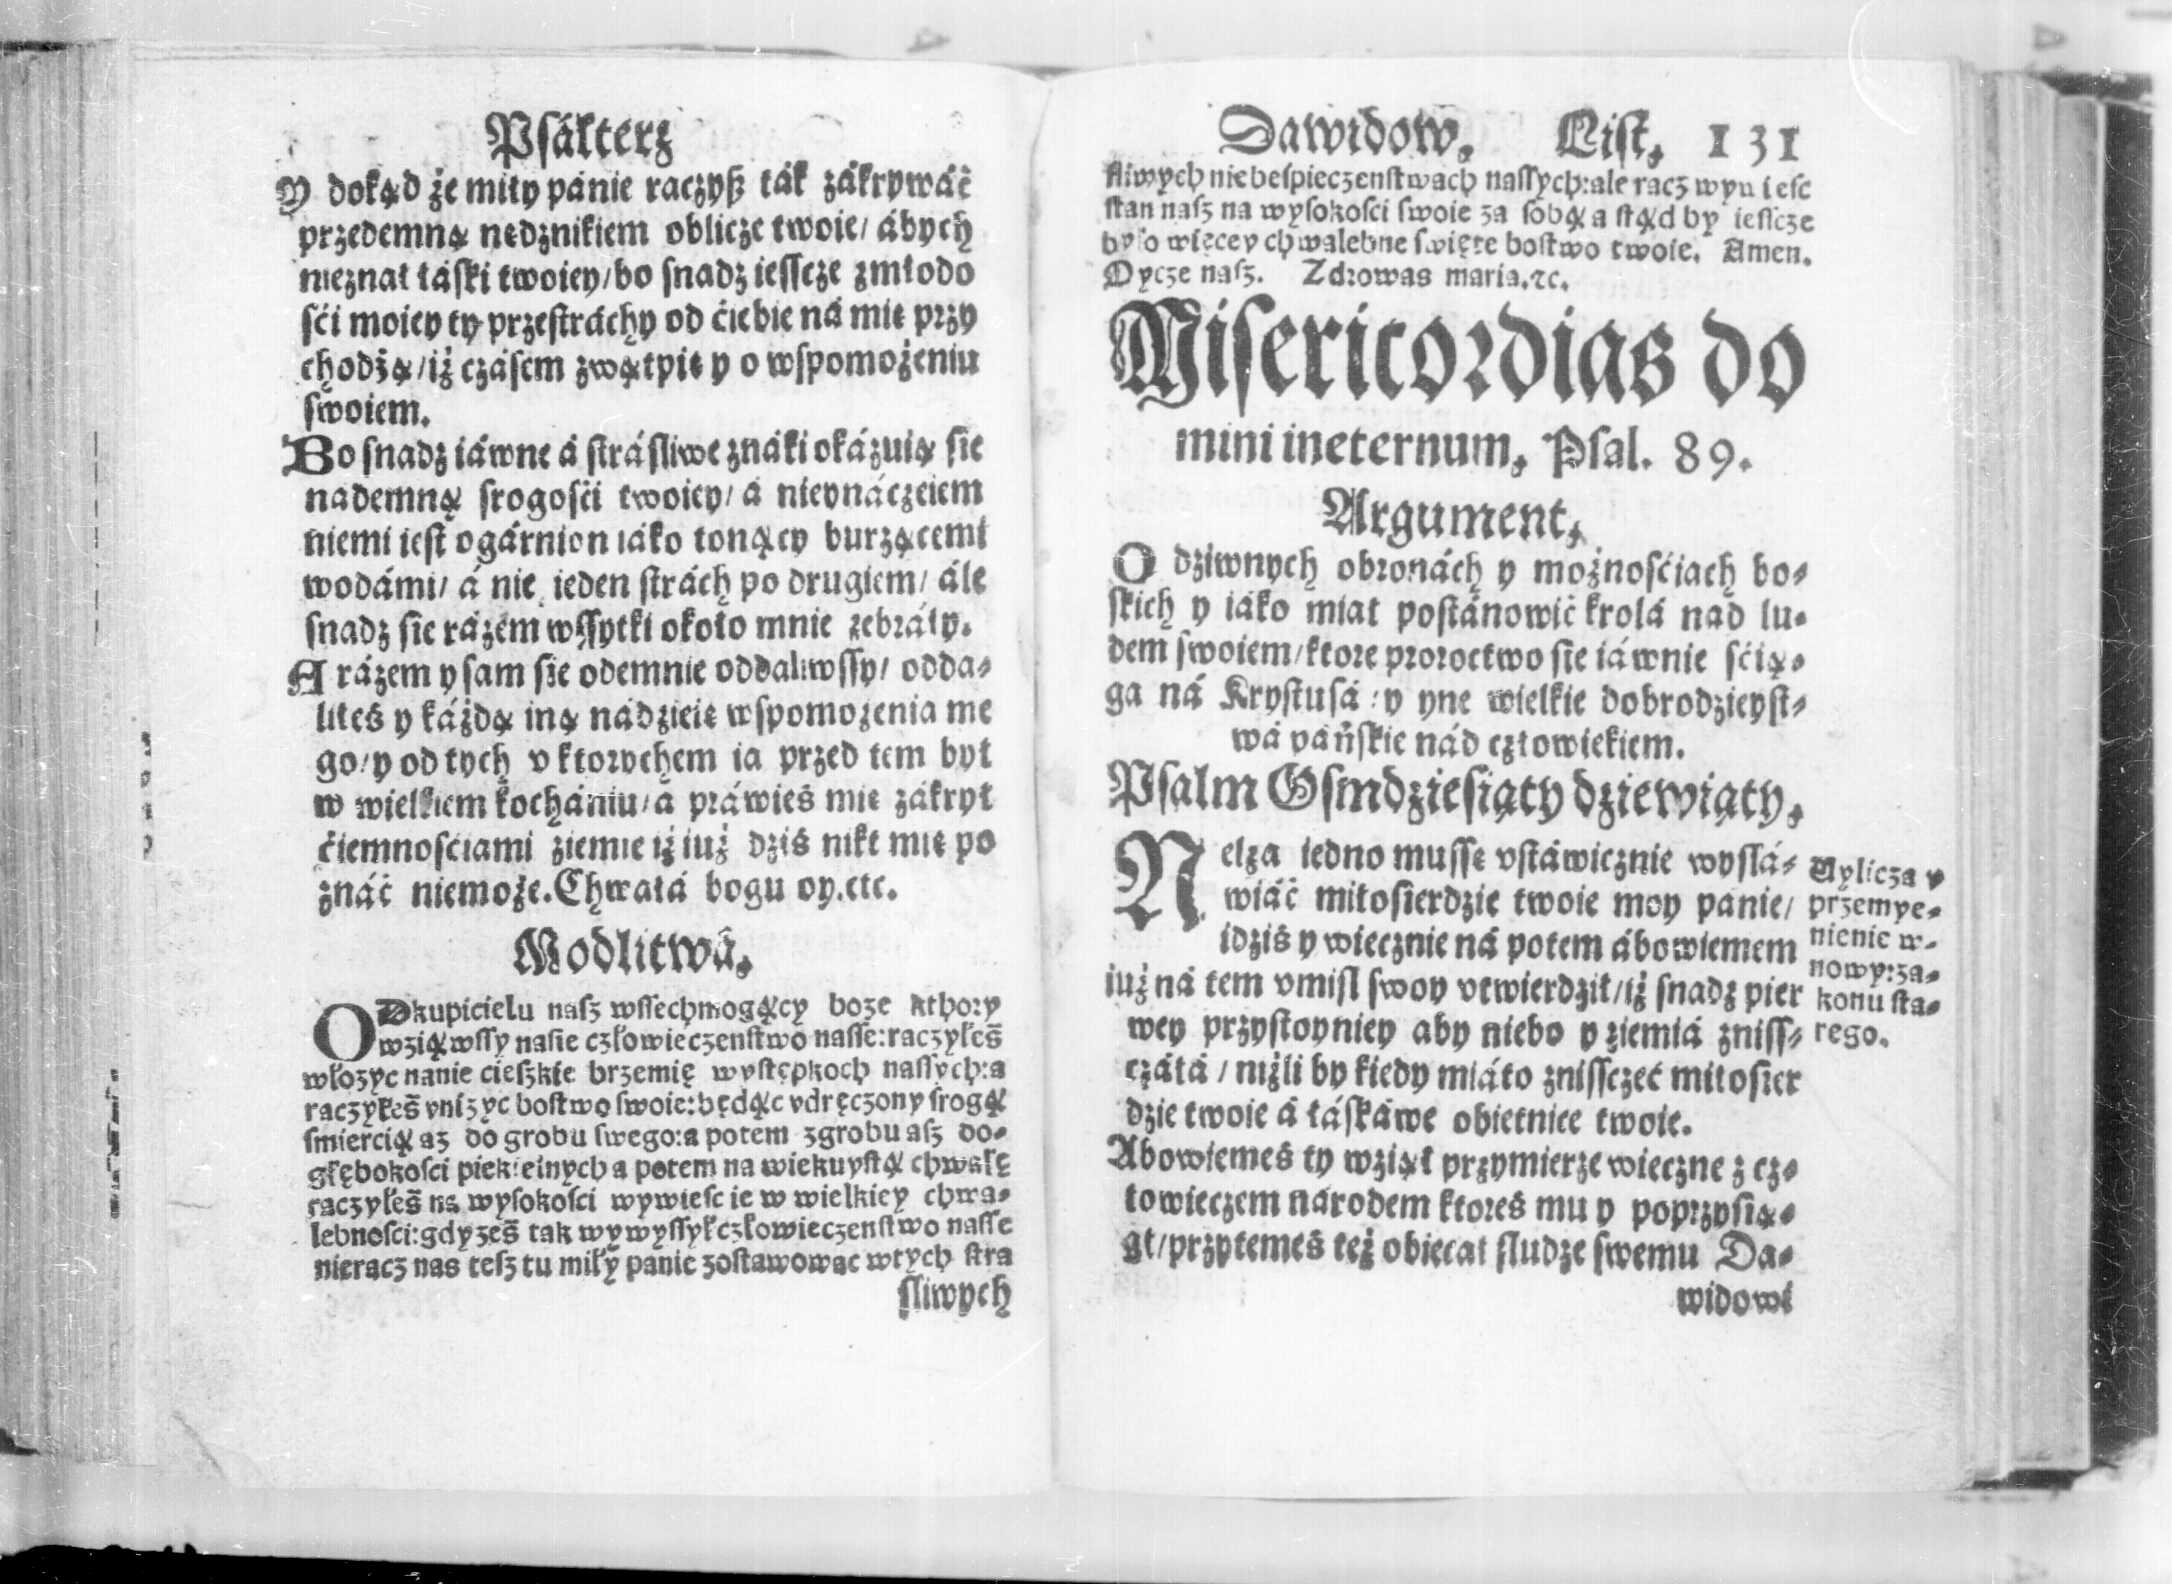 Psálterz
Y dokąd że miły pánie raczyß ták zákrywáć
przedemną nędznikiem oblicze twoie/ ábych
nieznał łáski twoiey/bo snadz iesscze zmłodo
sći moiey ty przestráchy od ćiebie ná mię przy
chodzą/iż czásem zwątpię y o wspomożeniu
swoiem.
Bo snadz iáwne á strásliwe znáki okázuią sie
nademną srogosći twoiey/ á nieynáczeiem
niemi iest ogárnion iáko tonący burzącemi
wodámi/ á nie ieden strách po drugiem/ ále
snadz sie rázem wssytki około mnie zebráły.
A rázem y sam sie odemnie oddaliwssy/ odda-
liłeś y káżdą iną nádzieię wspomożenia me
go/y od tych v ktorychem ia przed tem był
w wielkiem kochániu/á práwieś mię zákrył
ćiemnosciami ziemie iż iuż dziś nikt mię po
znáć niemoże.Chwałá bogu oy.etc.
Modlitwá.
ODkupicielu nasz wssechmogący boze kthory
wziąwssy nasie człowieczenstwo nasse:raczyłeś
włozyc nanie cieszkie brzemię występkoch nassych:a
raczyłeś vnizyc bostwo swoie:będąc vdręczony srogą
smiercią az do grobu swego:a potem zgrobu asz do-
głębokosci piekielnych a potem na wiekuystą chwałę
raczyłeś na wysokosci wywiesc ie w wielkiey chwa-
lebnosci:gdyześ tak wywyssył człowieczenstwo nasse
nieracz nas tesz tu miły panie zostawowac wtych stra
sliwych
Dawidow. List. 131
sliwych niebespieczenstwach nassych:ale racz wyniesc
stan nasz na wysokosci swoie za sobą a stąd by iescze
było więcey chwalebne swięte bostwo twoie. Amen.
Oycze nasz. Zdrowas maria.etc.
Misericordias do
mini ineternum. Psal. 89.
Argument.
O dziwnych obronách y możnosćiach bo-
skich y iáko miał postánowić krolá nad lu-
dem swoiem/ktore proroctwo sie iáwnie sćią-
ga ná Krystusá : y yne wielkie dobrodzieyst-
wá páńskie nád człowiekiem.
Psalm Osmdziesiąty dziewiąty.
Nelza iedno mussę vstáwicznie wyssłá-
wiáć miłosierdzie twoie moy panie/
idziś y wiecznie ná potem ábowiemem
iuż ná tem vmisl swoy vtwierdził/iż snadz pier
wey przystoyniey aby niebo y ziemiá zniss-
czátá / niżli by kiedy miáło znissczeć miłosier
dzie twoie á łáskáwe obietnice twoie.
Abowiemeś ty wziął przymierze wieczne z cz-
łowieczem národem ktoreś mu y poprzysią-
gł/przytemeś też obiecał sludze swemu Da-
widowi
Wylicza y
przempe-
nienie w-
nowy:za-
konu sta-
rego.